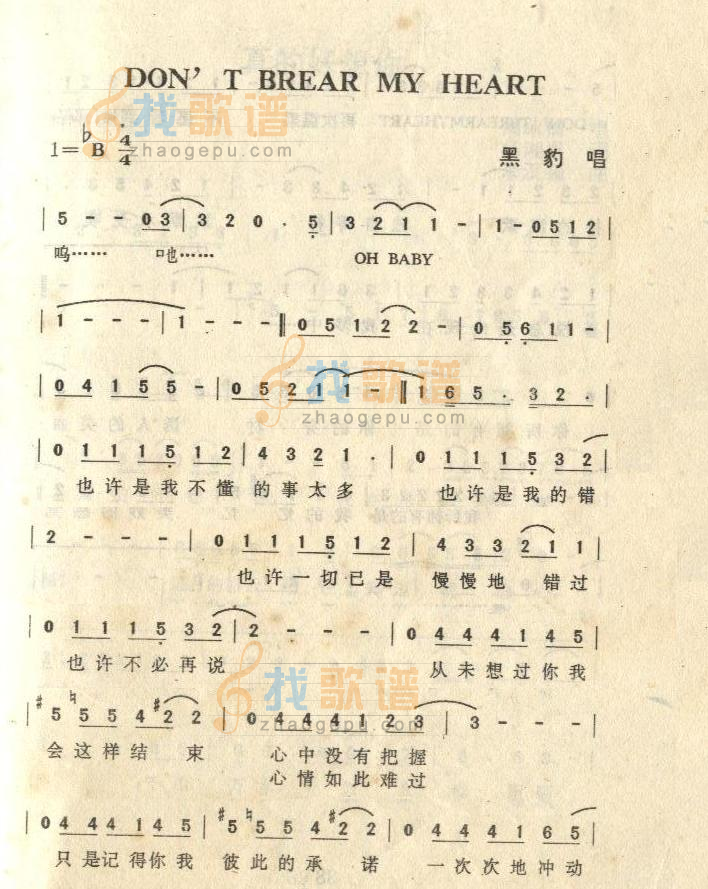 DON'T BREAR MY HEART
1=♭B 4/4
黑豹唱
找歌谱
zhaogepu.com
| 5 - - 0 3 | 3 2 0 · 5 | 3 2 1 1 - | 1 - 0 5 1 2 |
呜…… 吔…… OH BABY
| 1 - - - | 1 - - - ‖ 0 5 1 2 2 - | 0 5 6 1 1 - |
| 0 4 1 5 5 - | 0 5 2 1 1 - ‖ 1 6 5 · 3 2 · |
找歌谱
zhaogepu.com
| 0 1 1 1 5 1 2 | 4 3 2 1 · | 0 1 1 1 5 3 2 |
也许是我不懂 的事太多 也许是我的错
2 - - - | 0 1 1 1 5 1 2 | 4 3 3 2 1 1 |
也许一切已是 慢慢地 错过
0 1 1 1 5 3 2 | 2 - - - | 0 4 4 4 1 4 5 |
也许不必再说 从未想过你我
找歌谱
zhaogepu.com
| #5 ♮5 5 4 #2 2 | 0 4 4 4 1 2 3 | 3 - - - |
会这样结 束 心中没有把握
心情如此难过
| 0 4 4 4 1 4 5 | #5 ♮5 5 4 #2 2 | 0 4 4 4 1 6 5 |
只是记得你我 彼此的承 诺 一次次地冲动